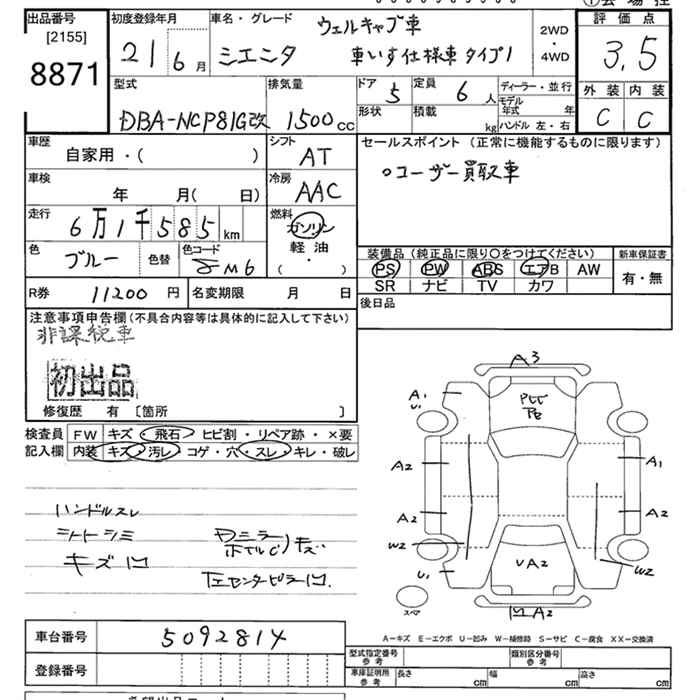 出品番号
[2155]
8871
初度登録年月
21 6 月
車名・グレード
ウェルキャブ車
シエンタ 車いす仕様車 タイプ1
2WD
・
4WD
評価点
3.5
外装 内装
C C
型式
DBA-NCP81G改
排気量
1500 cc
ドア 5
定員 6 人
ディーラー・並行
モデル年式 年
形状
積載 kg
ハンドル 左・右
車歴
自家用・( )
シフト
AT
車検
年 月( 日)
冷房
AAC
走行
6万1千585 km
燃料
ガソリン
軽油
( )
色
ブルー
色替
色コード
8M6
R券 11200 円
名変期限 月 日
セールスポイント (正常に機能するものに限ります)
○ユーザー買取車
装備品 (純正品に限り○をつけてください)
新車保証書
PS PW ABS エアB AW
有・無
SR ナビ TV カワ
後日品
注意事項申告欄(不具合内容等は具体的に記入して下さい)
非課税車
初出品
修復歴 有 〔箇所 〕
検査員
記入欄
FW キズ・飛石・ヒビ割・リペア跡・×要
内装 キズ・汚レ・コゲ・穴・スレ・キレ・破レ
ハンドルスレ
シートシミ
キズ凹
ドアミラー
ホイルC)キズ
左センターピラー凹
A3
A1
U1
A2
A1
A2
A2
W2
W2
U1
UA2
凹A2
スペア
A-キズ E-エクボ U-凹み W-補修跡 S-サビ C-腐食 XX-交換済
車台番号 5092814
登録番号
型式指定番号
参考
類別区分番号
参考
車庫証明用
参考
長さ cm
幅 cm
高さ cm